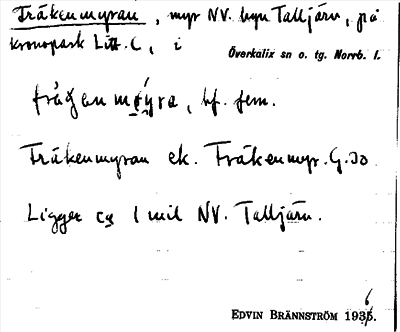 Träkenmyran, myr NV. byn Talljärv, på
kronopark Litt. C, i
Överkalix sn o. tg. Norrb. l.
bf. fem.
Träkenmyran ek. Träkenmyr. G. Jo
Ligger ca 1 mil NV. Talljärv.
EDVIN BRÄNNSTRÖM 1936.